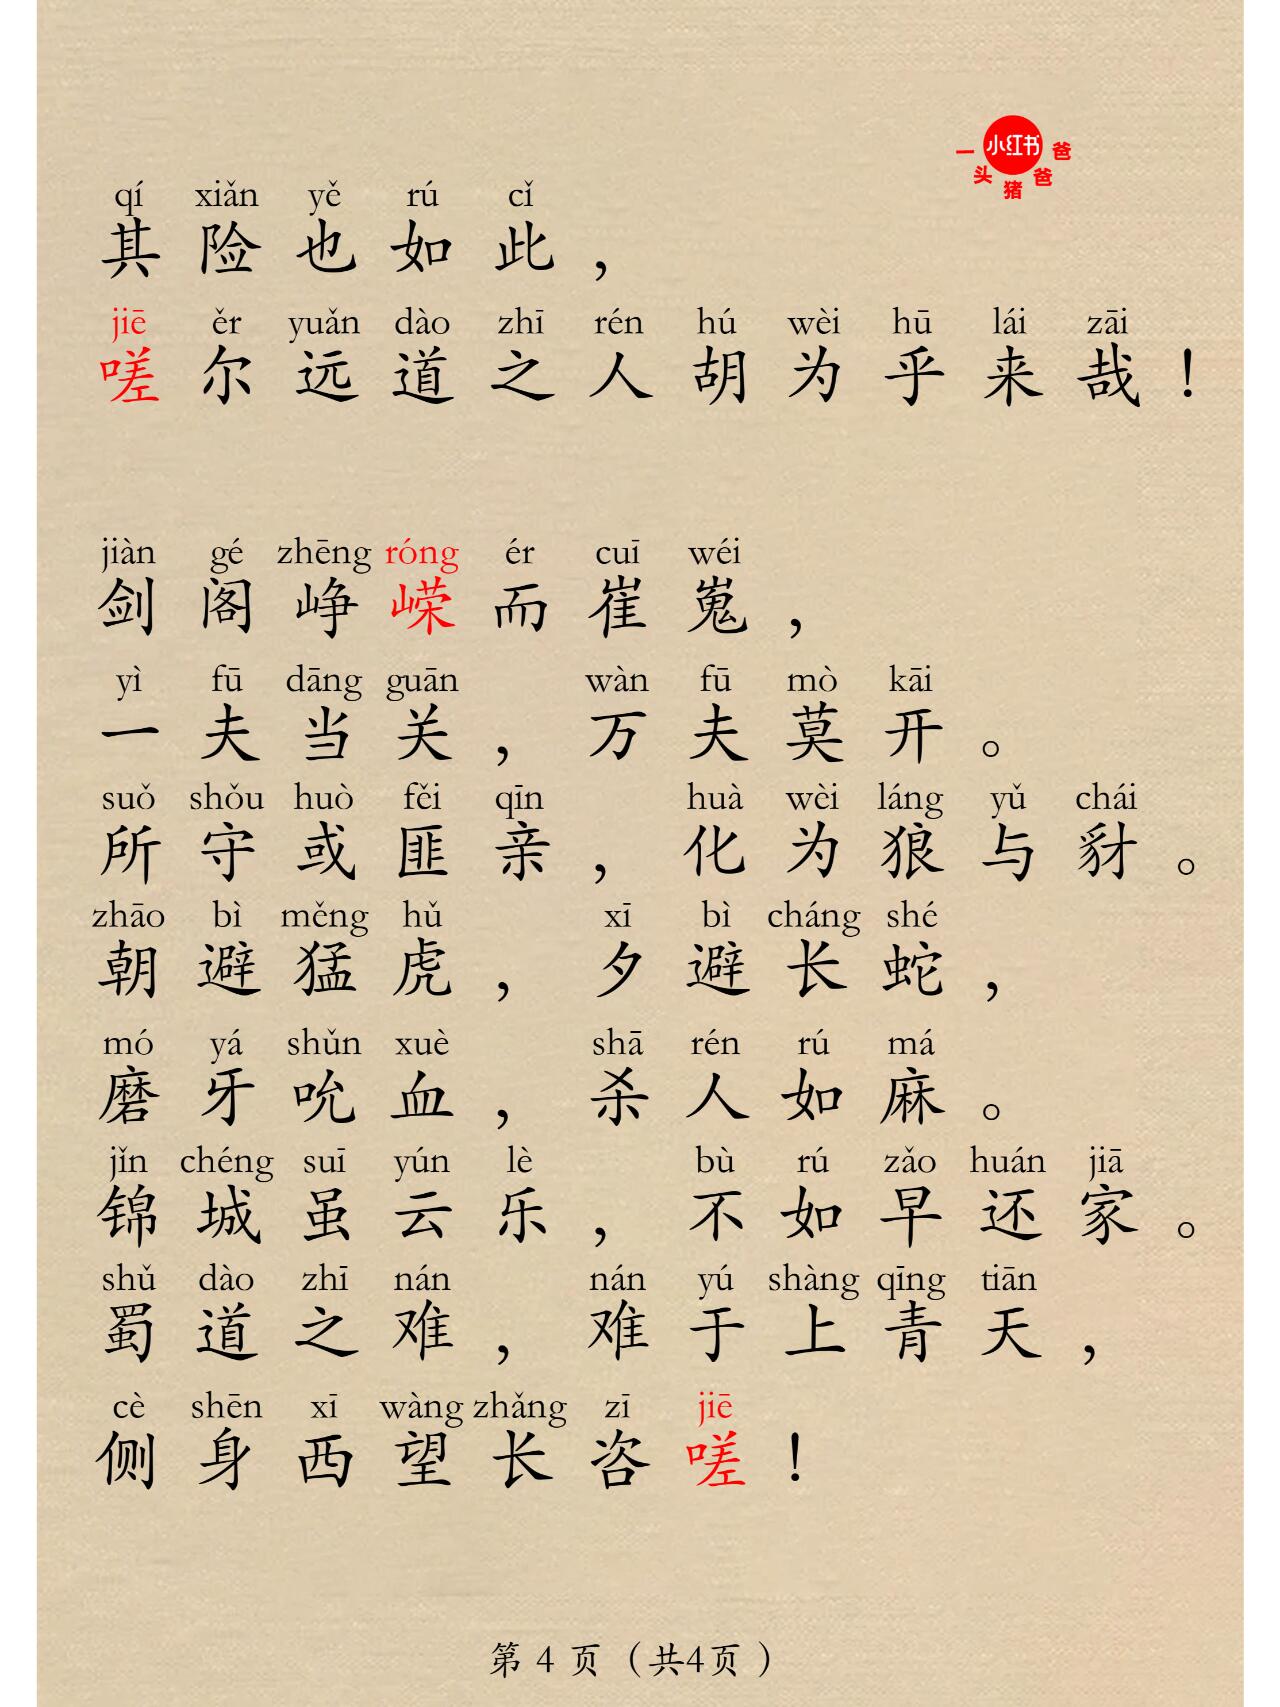 小红书
一头猪爸爸
qí xiǎn yě rú cǐ
其险也如此，
jiē ěr yuǎn dào zhī rén hú wèi hū lái zāi
嗟尔远道之人胡为乎来哉！
jiàn gé zhēng róng ér cuī wéi
剑阁峥嵘而崔嵬，
yì fū dāng guān wàn fū mò kāi
一夫当关，万夫莫开。
suǒ shǒu huò fěi qīn huà wèi láng yǔ chái
所守或匪亲，化为狼与豺。
zhāo bì měng hǔ xī bì cháng shé
朝避猛虎，夕避长蛇，
mó yá shǔn xuè shā rén rú má
磨牙吮血，杀人如麻。
jǐn chéng suī yún lè bù rú zǎo huán jiā
锦城虽云乐，不如早还家。
shǔ dào zhī nán nán yú shàng qīng tiān
蜀道之难，难于上青天，
cè shēn xī wàng zhǎng zī jiē
侧身西望长咨嗟！
第 4 页（共4页）